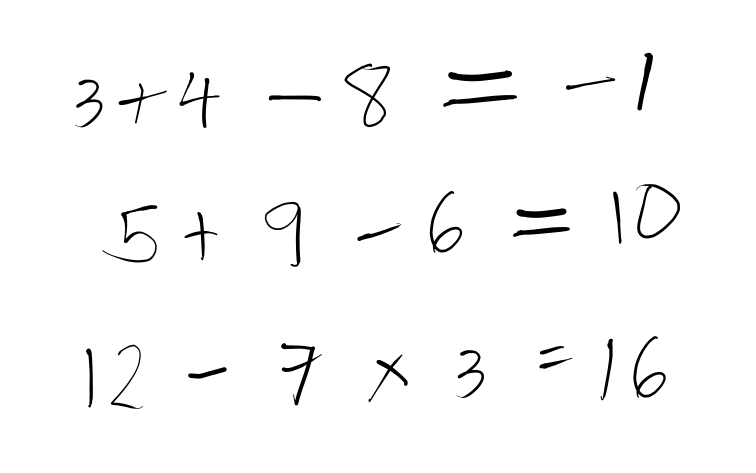 3+4 - 8 = -1
5 + 9 - 6 = 10
12 - 7 × 3 = 16